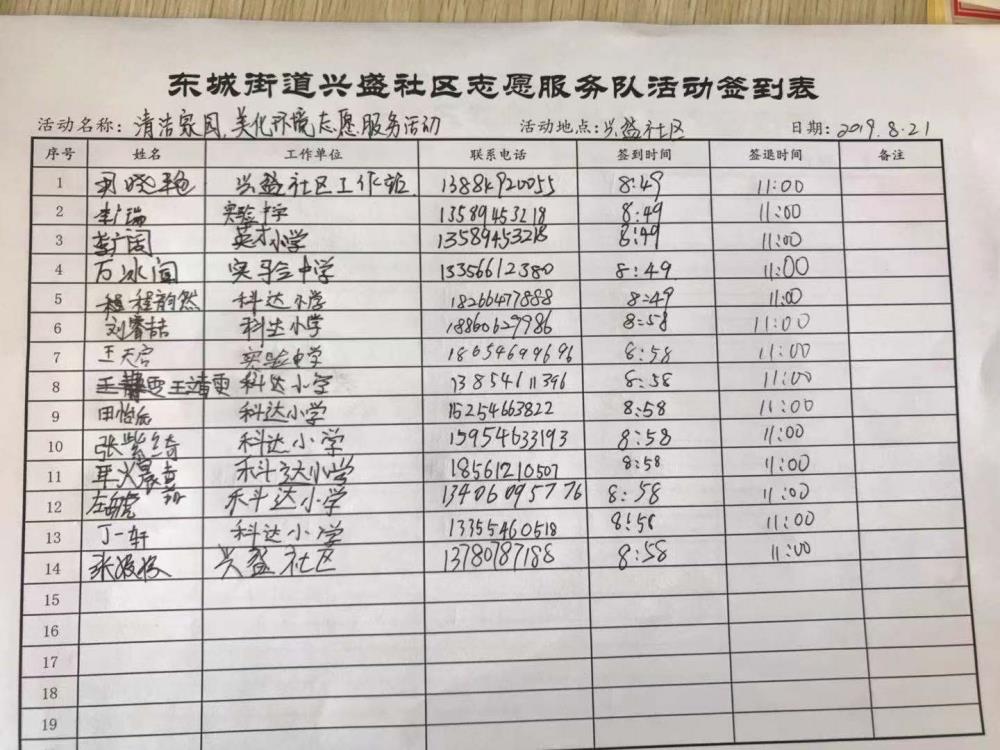 东城街道兴盛社区志愿服务队活动签到表
活动名称：清洁家园，美化环境志愿服务活动 活动地点：兴盛社区 日期：2019.8.21
序号 姓名 工作单位 联系电话 签到时间 签退时间 备注
1 兴盛社区工作站 13884920055 8:49 11:00
2 李广瑞 实验中学 13589453218 8:49 11:00
3 李广阔 英才小学 13589453218 8:49 11:00
4 万冰闻 实验中学 13356612380 8:49 11:00
5 程韵然 科达小学 18266477888 8:49 11:00
6 刘睿喆 科达小学 18860629986 8:58 11:00
7 王天启 实验中学 18654699696 8:58 11:00
8 王靖雯 科达小学 13854611396 8:58 11:00
9 田怡辰 科达小学 15254663822 8:58 11:00
10 张紫绮 科达小学 15954633193 8:58 11:00
11 科达小学 18561210507 8:58 11:00
12 科达小学 13406095776 8:58 11:00
13 丁一轩 科达小学 13355460518 8:58 11:00
14 兴盛社区 13780787188 8:58 11:00
15
16
17
18
19